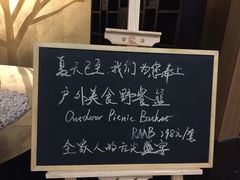 夏天已至，我们为您奉上
户外美食野餐篮
Outdoor Picnic Basket
RMB 198元/套
全家人的
盛宴